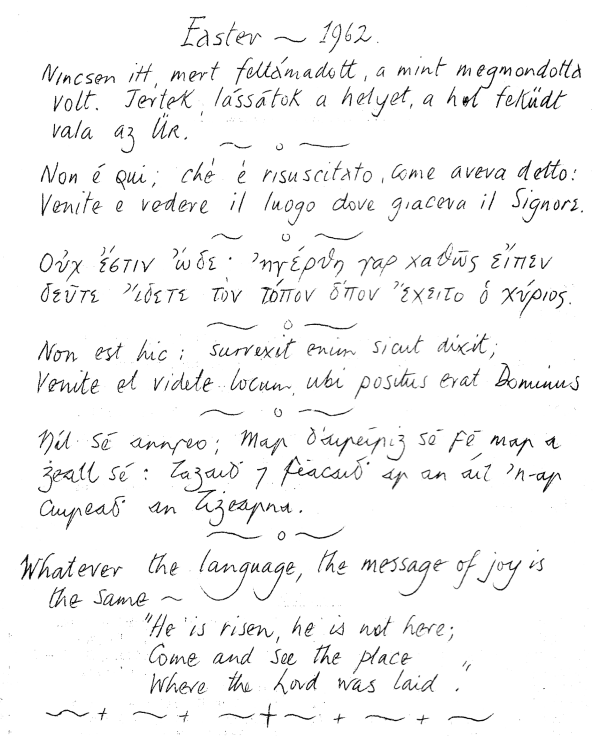 Easter ~ 1962.
Nincsen itt, mert feltámadott, a mint megmondotta
volt. Jertek, lássátok a helyet, a hol feküdt
vala az Úr.
Non é qui; ché é risuscitato, come aveva detto:
Venite e vedere il luogo dove giaceva il Signore.
Οὐχ ἔστιν ὧδε· ἠγέρθη γαρ χαθῶς εἶπεν
δεῦτε ἴδετε τὸν τόπον ὅπου ἔχειτο ὁ χύριος.
Non est hic: surrexit enim sicut dixit;
Venite et videte locum, ubi positus erat Dominus
Níl sé annseo; Mar d'aiséiriġ sé Fé mar a
ġeall sé: Tagaiḋ ⁊ féacaiḋ ar an áit 'n-ar
cuireaḋ an Tiġearna.
Whatever the language, the message of joy is
the same ~
"He is risen, he is not here;
Come and see the place
Where the Lord was laid."